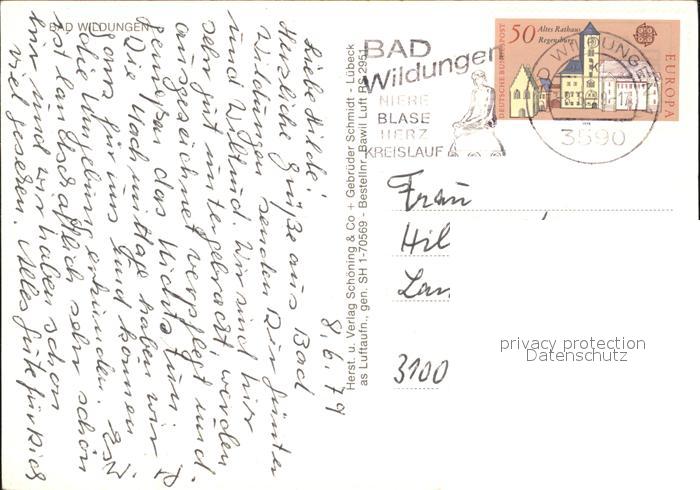 BAD WILDUNGEN
8.6.79
Liebe Hilde!
Herzliche Grüße aus Bad
Wildungen senden Dir Günter
und Wiltrud. Wir sind hier
sehr gut untergebracht, werden
ausgezeichnet verpflegt und
genießen das Nichtstun.
Die Nachmittage haben wir
ans für uns und können
die Umgebung erkunden. Es
ist landschaftlich sehr schön
hier und wir haben schon
viel gesehen. Alles Gute für Dich
Herst. u. Verlag Schöning & Co + Gebrüder Schmidt - Lübeck
as Luftaufn., gen. SH 1-70569 - Bestellnr. Bawil Luft R8 2951
BAD
Wildungen
NIERE
BLASE
HERZ
KREISLAUF
DEUTSCHE BUNDESPOST
50
Altes Rathaus
Regensburg
EUROPA
WILDUNGEN
3590
Frau
Hil
Lan
3100
privacy protection
Datenschutz